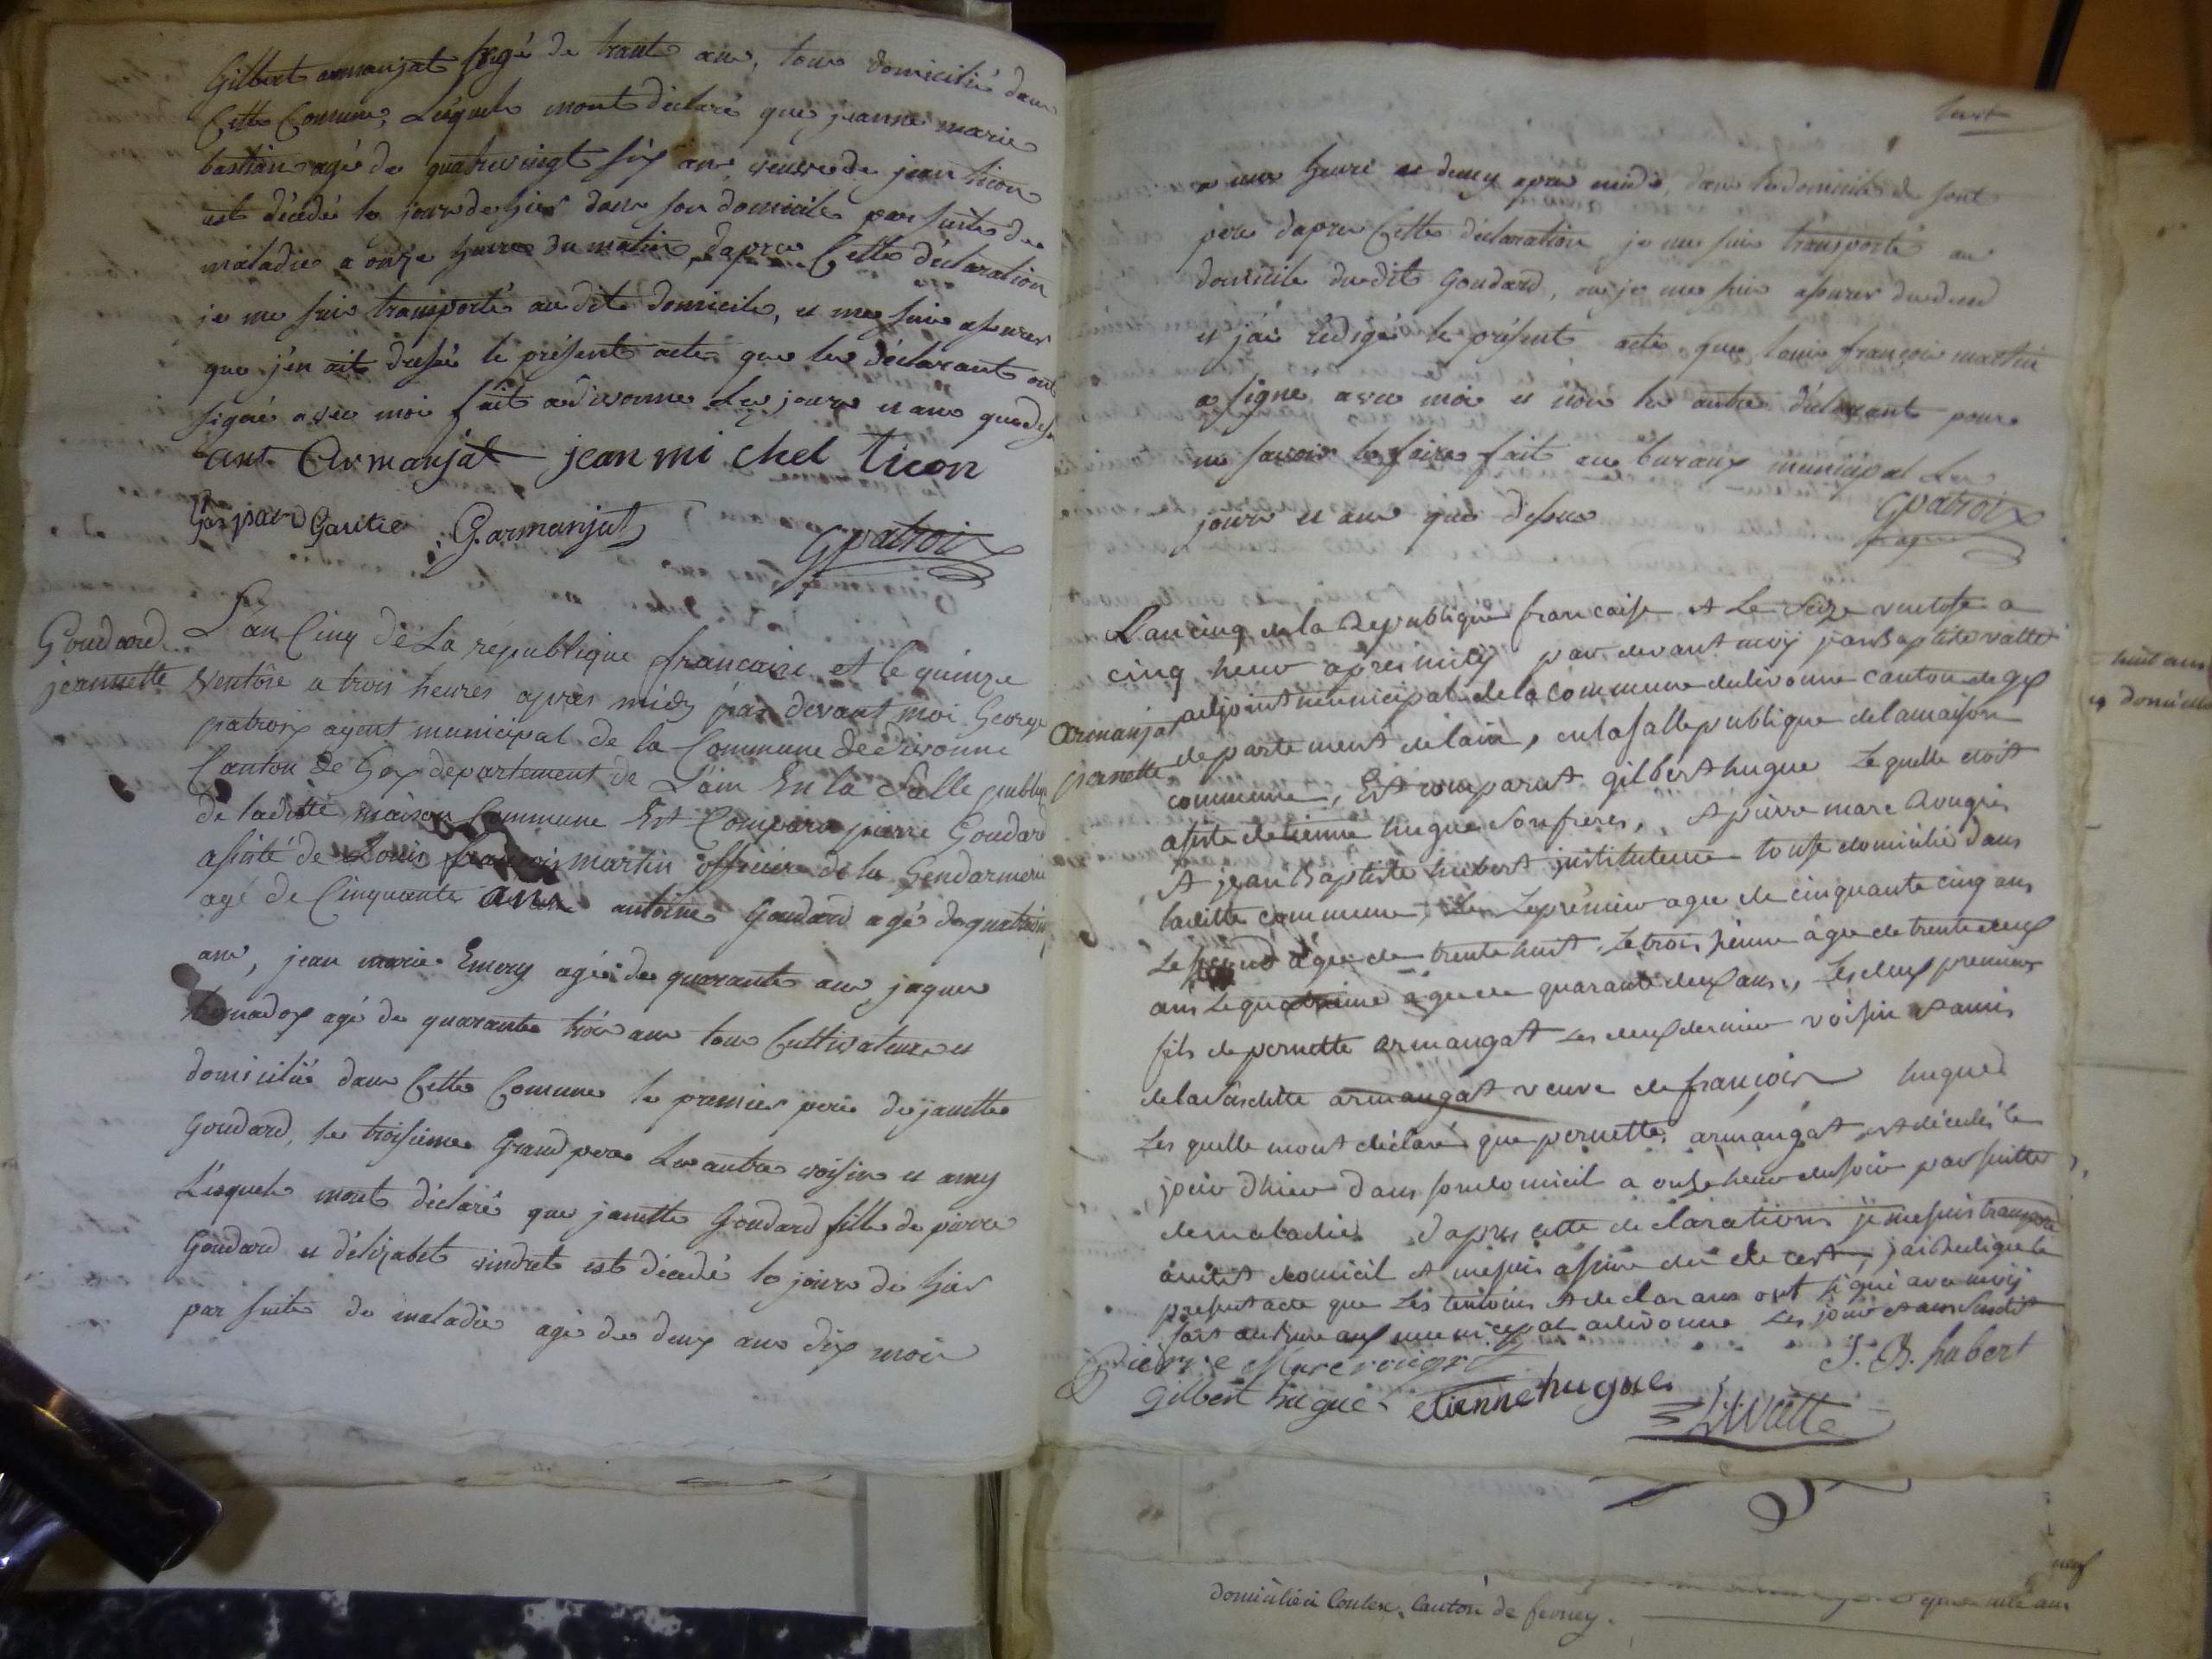 Gilbert armanjat agé de trante ans, tous domicilié dans
Cette Commune, Lesquels mont déclaré que jeanne marie
bastian agé de quatrevingt six ans, veuve de jean ticon
est décédé le jour de hier dans son domicile par suite de
maladie a onze heures du matin, dapres Cette déclaration
je me suis transporté au dit domicile, et me suis assurer
que jén ait dressé le présent acte que les déclarant ont
signé avec moi fait a divonne Les jours et ans que dessus
ant Armanjat jean mi chel ticon
Gaspard Gautie G. armanjat
G patroix
Goudard
jeannette
L'an Cinq de La république francaise et le quinze
Ventôse a trois heures apres midy par devant moi George
patroix agent municipal de la Commune de divonne
Canton de Gex departement de L'ain En la Salle publique
de laditte maison Commune Est Comparu pierre Goudard
assisté de Louis françois martin officier de la Gendarmerie
agé de Cinquante ans antoine Goudard agé de
ans, jean marie Emery agé de quarante ans jaques
agé de quarante trois ans tous Cultivateurs et
domicilié dans Cette Comune le premier pere de janette
Goudard, le troisieme Grand pere Les autre voisin et amy
Lesquels mont déclaré que janette Goudard fille de pierre
Goudard et d'élizabet vindret est décédé le jour de hier
par suite de maladie agé de deux ans dix mois
huit
a une heure et demy apres midi, dans le domicile de sont
père dapres Cette déclaration je me suis transporté au
domicile dudit Goudard, ou je me suis assurer du décès
et jái rédigé le présent acte que louis françois martin
a signé avec moi et non les autre déclarant pour
ne savoir le faire fait au buraux municipal Les
jours et ans que dessus
G patroix
agent
Armanjat
pernette
L an cinq de la Republique francaise et Le Seize ventose a
cinq heur apres midy par devant moy jean Baptiste vatte
adjoint municipal de la commune de divonne canton de gex
departement de lain, en la salle publique de la maison
commune, Est comparut gilbert hugue Le quelle etoit
asiste detienne hugue Son freres, et pierre marc Rougri
et jean Baptiste hubert instituteur touse domicilié dans
laditte commune, Le premier agee de cinquante cinq ans
Le second agee de trente huit Le trois sieme agee de trente deux
ans Le quatrieme agee de quarante deux ans, Les deux premier
fils de pernette armangat Les deux dernier voisin et amis
de la susditte armangat veuve de francois hugues
Les quelle mont déclaré que pernette armangat est décédés le
jour dhier dans son domicil a onze heur du soir par suitte
de maladie dapres cette declaration je me suis transporté
audit domicil et me suis assure du de cest, jai Redige le
present acte que Les temoins et declarans ont signé avec moy
fait au bureaux municipal a divonne Les jour et ans Susdit
Pierre Marc rougri J. B. hubert
Gilbert hugue etienne hugues
Vatte
huit ans
domicilié à Conlex, Canton de ferney.
neuf
ans